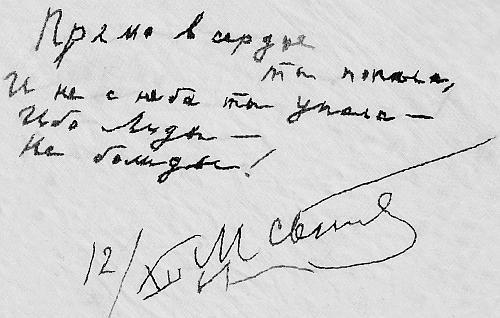 Прямо в сердце
ты попала,
И не с неба ты упала —
Ибо Лиды —
Не болиды!
12/XII М Светлов